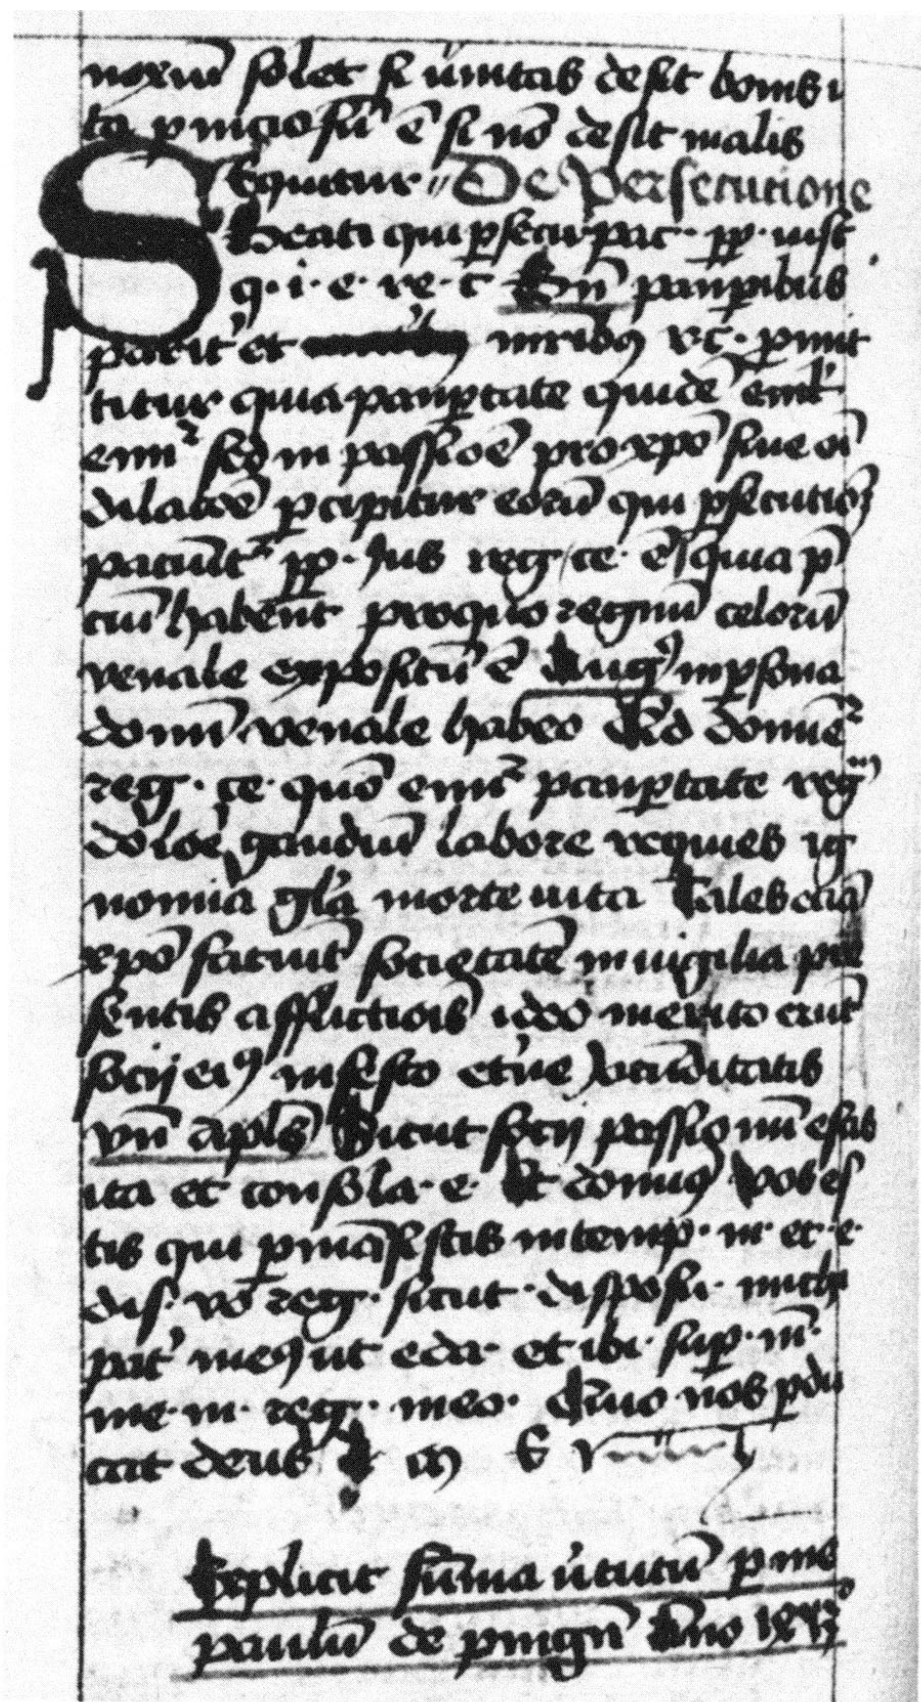 noxiũ solet si ũnitas desit bonis i
ta p̱niciosũ ẽ si nõ desit malis
Sequitur De Persecutione
Beati qui p̱secu. pat. pp̱. iust
q. i. e. re. c̃ Bñ paup̱ibus
parit᷑ et mr̃ib9 rc̃. p̱mit
titur quia paup̱tate quidẽ
emit᷑ sed in passiõe pro xp̃o siue
p̱cipitur eorũ qui p̱secutiõ
paciũt᷑ pp̱. Jus reg. ce. ẽ quia p̃
ciũ habent pro quo regnũ celorũ
venale expositũ ẽ Aug9 in p̱sona
domĩ venale habeo
reg. ce. quõ emit᷑ paup̱tate regm
dolõe gaudiũ labore requies ig
nomia gl̃a morte uita Tales eciã
xp̃o societatẽ in uigilia pre
sentis afflictiõis ideo merito erũt
socij ei9 in festo et̃ne iocũditatis
vñ apl̃s Sicut socij passionũ estis
ita et consola. e. Et domin9 Vos es
tis qui p̱mãsistis in temp. m. et. e.
dis. vo. reg. sicut. disposu. michi
pat᷑ me9 ut eda. et ibi. sup̱. m̃.
me. in. reg. meo. Quo nos p̱du
cat deus
Explicit sũma ũtutũ p̱ me
paulũ de Ãno